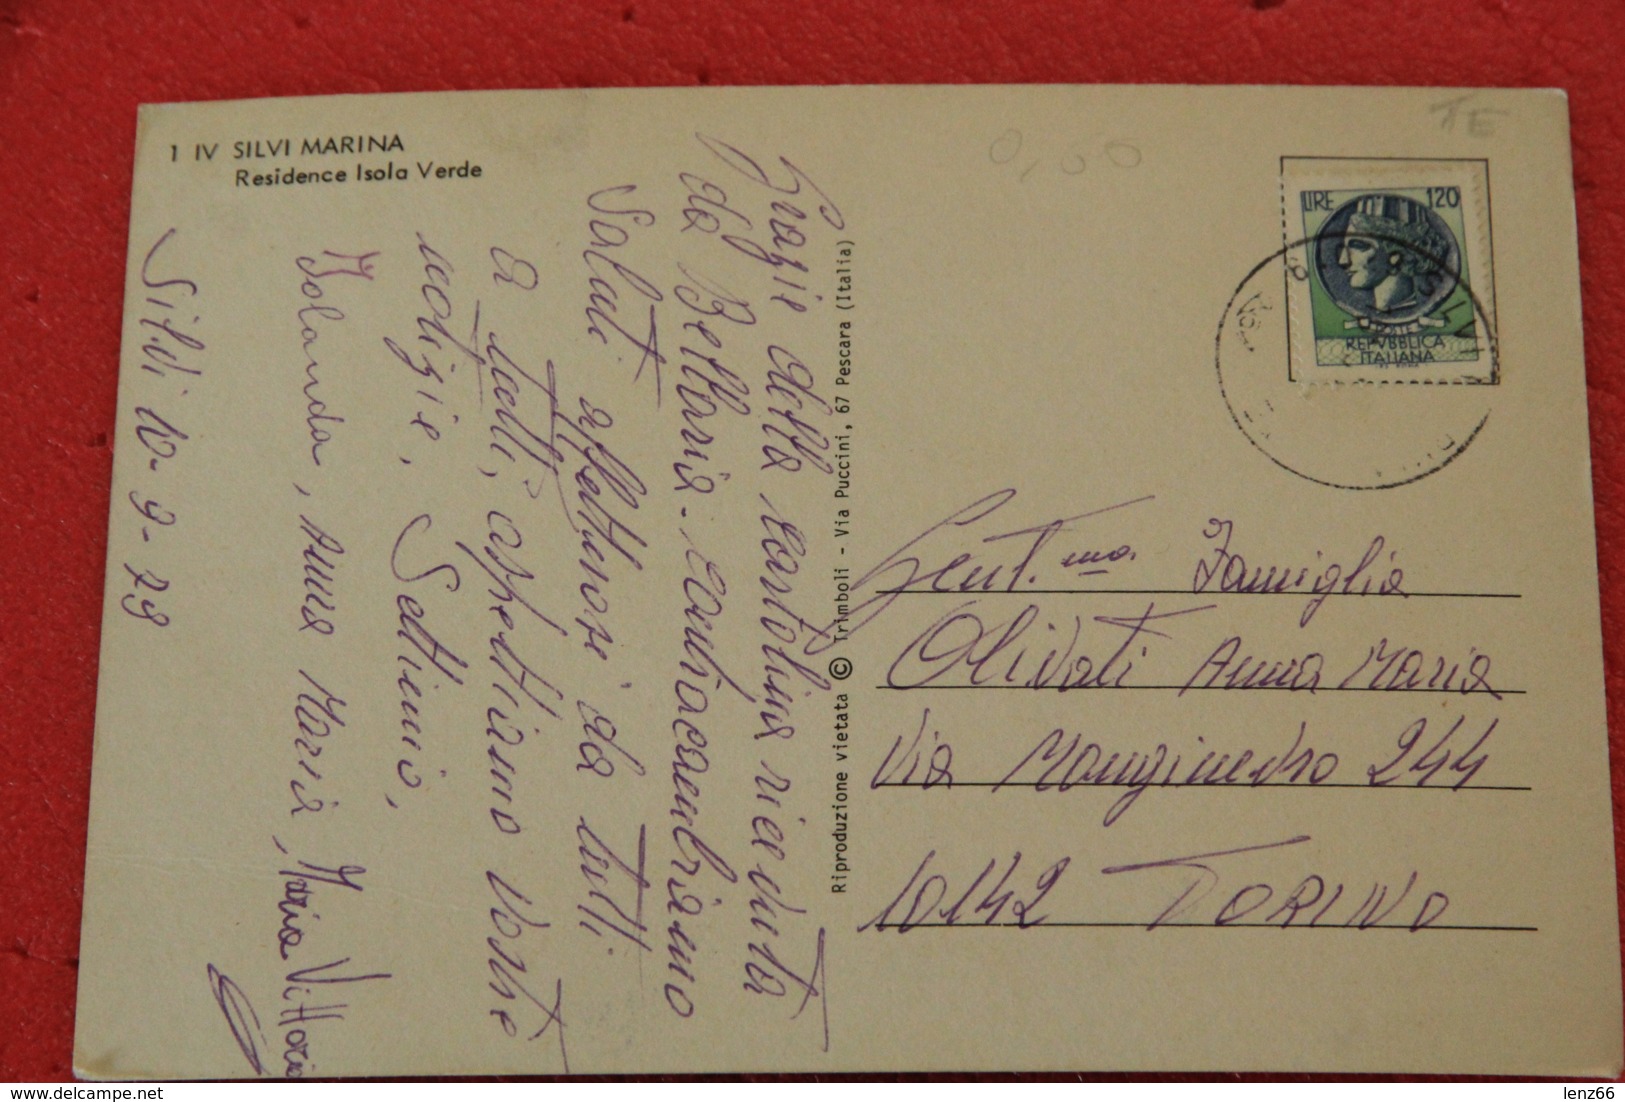 1 IV SILVI MARINA
Residence Isola Verde
Grazie della cartolina ricevuta
da Bellaria. Contraccambiamo
Saluti affettuosi da tutti
a tutti, aspettiamo vostre
notizie. Settimio,
Iolanda, Anna Maria, Maria Vittoria
Silvi 10-9-79
Riproduzione vietata © Trimboli - Via Puccini, 67 Pescara (Italia)
0,50
TE
LIRE 120
POSTE
REPVBBLICA
ITALIANA
SILVI
Gent.ma Famiglia
Olivati Anna Maria
Via Monginevro 244
10142 TORINO
delcampe.net
lenz66